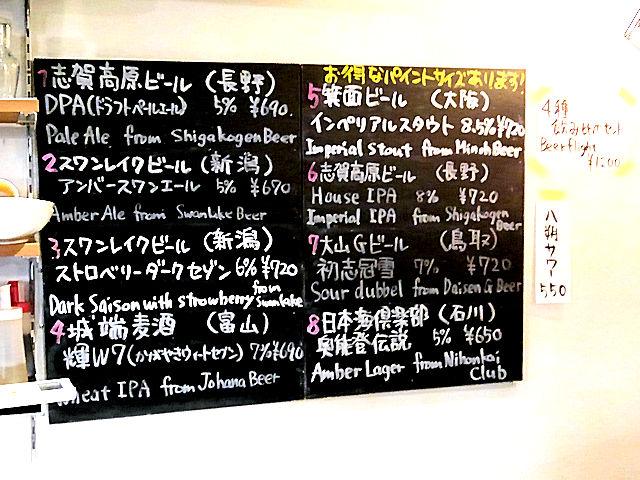 1志賀高原ビール (長野)
DPA(ドラフトペールエール) 5% ¥690.
Pale Ale from Shigakogen Beer
2スワンレイクビール (新潟)
アンバースワンエール 5% ¥670
Amber Ale from Swanlake Beer
3スワンレイクビール (新潟)
ストロベリーダークセゾン 6% ¥720
Dark Saison with strawberry from Swanlake
4城端麦酒 (富山)
輝W7(かがやきウィートセブン) 7% ¥690
Wheat IPA from Johana Beer
お得なパイントサイズあります!
5箕面ビール (大阪)
インペリアルスタウト 8.5% ¥720
Imperial Stout from Minoh Beer
6志賀高原ビール (長野)
House IPA 8% ¥720
Imperial IPA from Shigakogen Beer
7大山Gビール (鳥取)
初志冠雪 7% ¥720
Sour dubbel from Daisen G Beer
8日本海倶楽部 (石川)
奥能登伝説 5% ¥650
Amber Lager from Nihonkai Club
4種
飲み比べセット
Beer flight
¥1200
八朔サワー
550